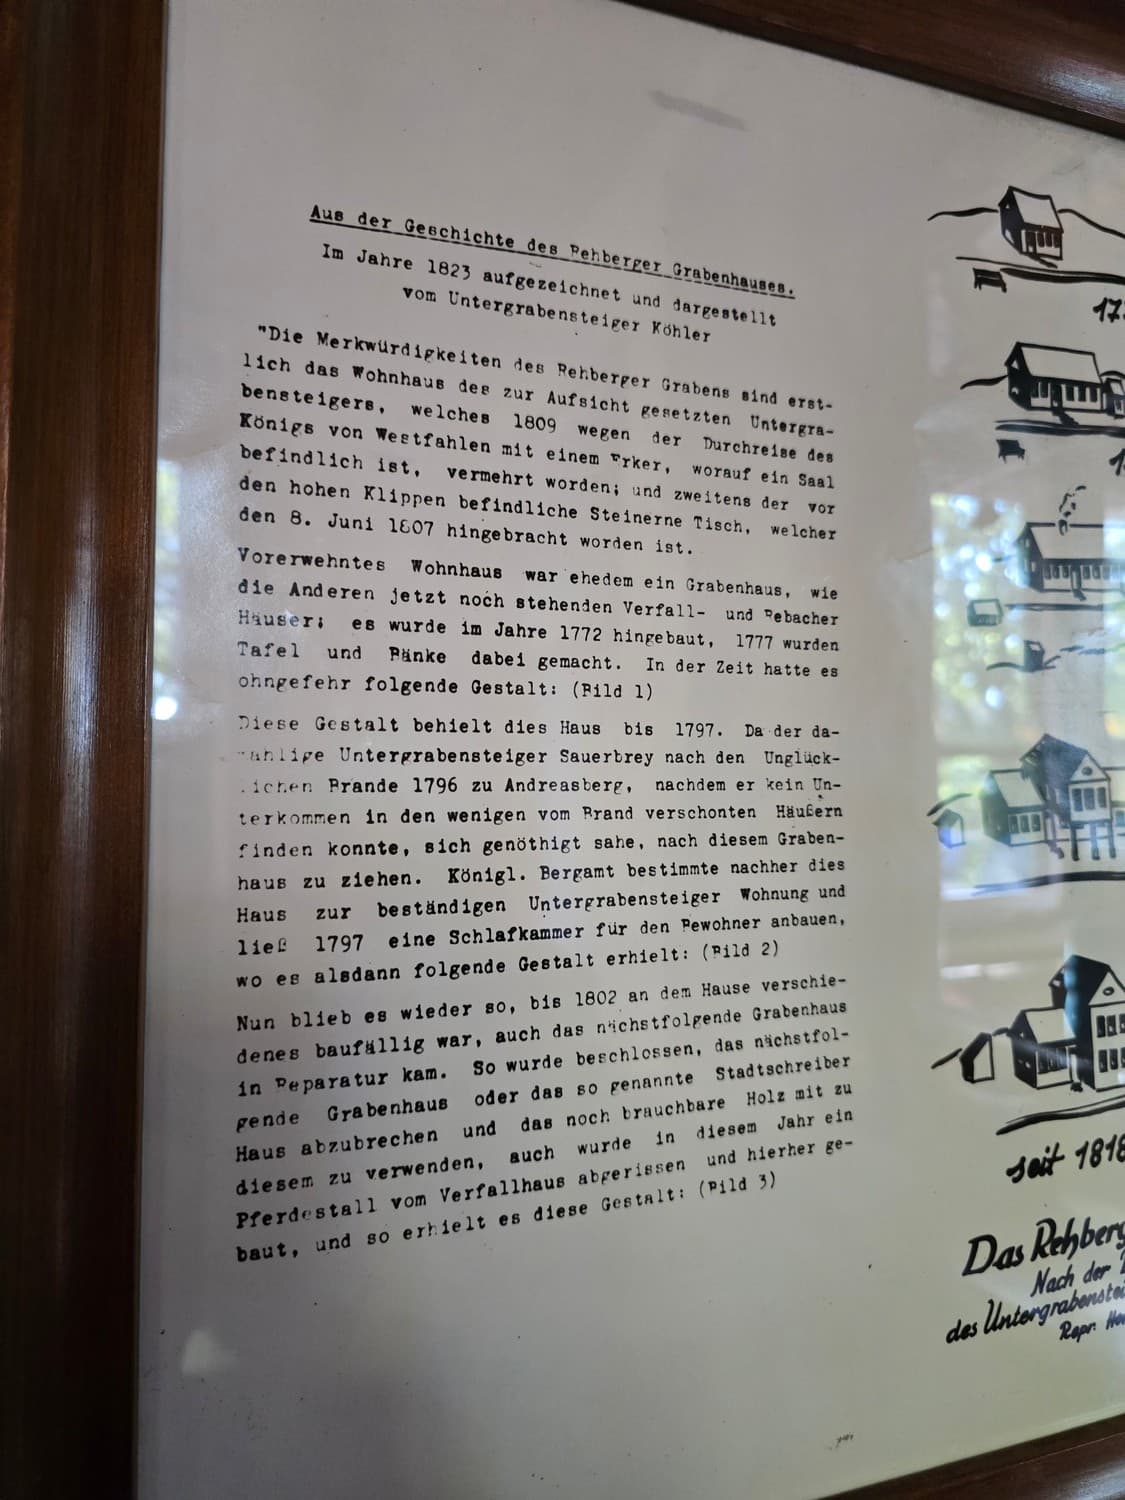 Aus der Geschichte des Rehberger Grabenhauses.
Im Jahre 1823 aufgezeichnet und dargestellt
vom Untergrabensteiger Köhler
"Die Merkwürdigkeiten des Rehberger Grabens sind erst-
lich das Wohnhaus des zur Aufsicht gesetzten Untergra-
bensteigers, welches 1809 wegen der Durchreise des
Königs von Westfahlen mit einem Erker, worauf ein Saal
befindlich ist, vermehrt worden; und zweitens der vor
den hohen Klippen befindliche Steinerne Tisch, welcher
den 8. Juni 1807 hingebracht worden ist.
Vorerwehntes Wohnhaus war ehedem ein Grabenhaus, wie
die Anderen jetzt noch stehenden Verfall- und Rebacher
Häuser; es wurde im Jahre 1772 hingebaut, 1777 wurden
Tafel und Bänke dabei gemacht. In der Zeit hatte es
ohngefehr folgende Gestalt: (Bild 1)
Diese Gestalt behielt dies Haus bis 1797. Da der da-
mahlige Untergrabensteiger Sauerbrey nach den Unglück-
lichen Brande 1796 zu Andreasberg, nachdem er kein Un-
terkommen in den wenigen vom Brand verschonten Häußern
finden konnte, sich genöthigt sahe, nach diesem Graben-
haus zu ziehen. Königl. Bergamt bestimmte nachher dies
Haus zur beständigen Untergrabensteiger Wohnung und
ließ 1797 eine Schlafkammer für den Bewohner anbauen,
wo es alsdann folgende Gestalt erhielt: (Bild 2)
Nun blieb es wieder so, bis 1802 an dem Hause verschie-
denes baufällig war, auch das nächstfolgende Grabenhaus
in Reparatur kam. So wurde beschlossen, das nächstfol-
gende Grabenhaus oder das so genannte Stadtschreiber
Haus abzubrechen und das noch brauchbare Holz mit zu
diesem zu verwenden, auch wurde in diesem Jahr ein
Pferdestall vom Verfallhaus abgerissen und hierher ge-
baut, und so erhielt es diese Gestalt: (Bild 3)
seit 1818
Das Rehberg
Nach der
des Untergrabenstei
Repr.